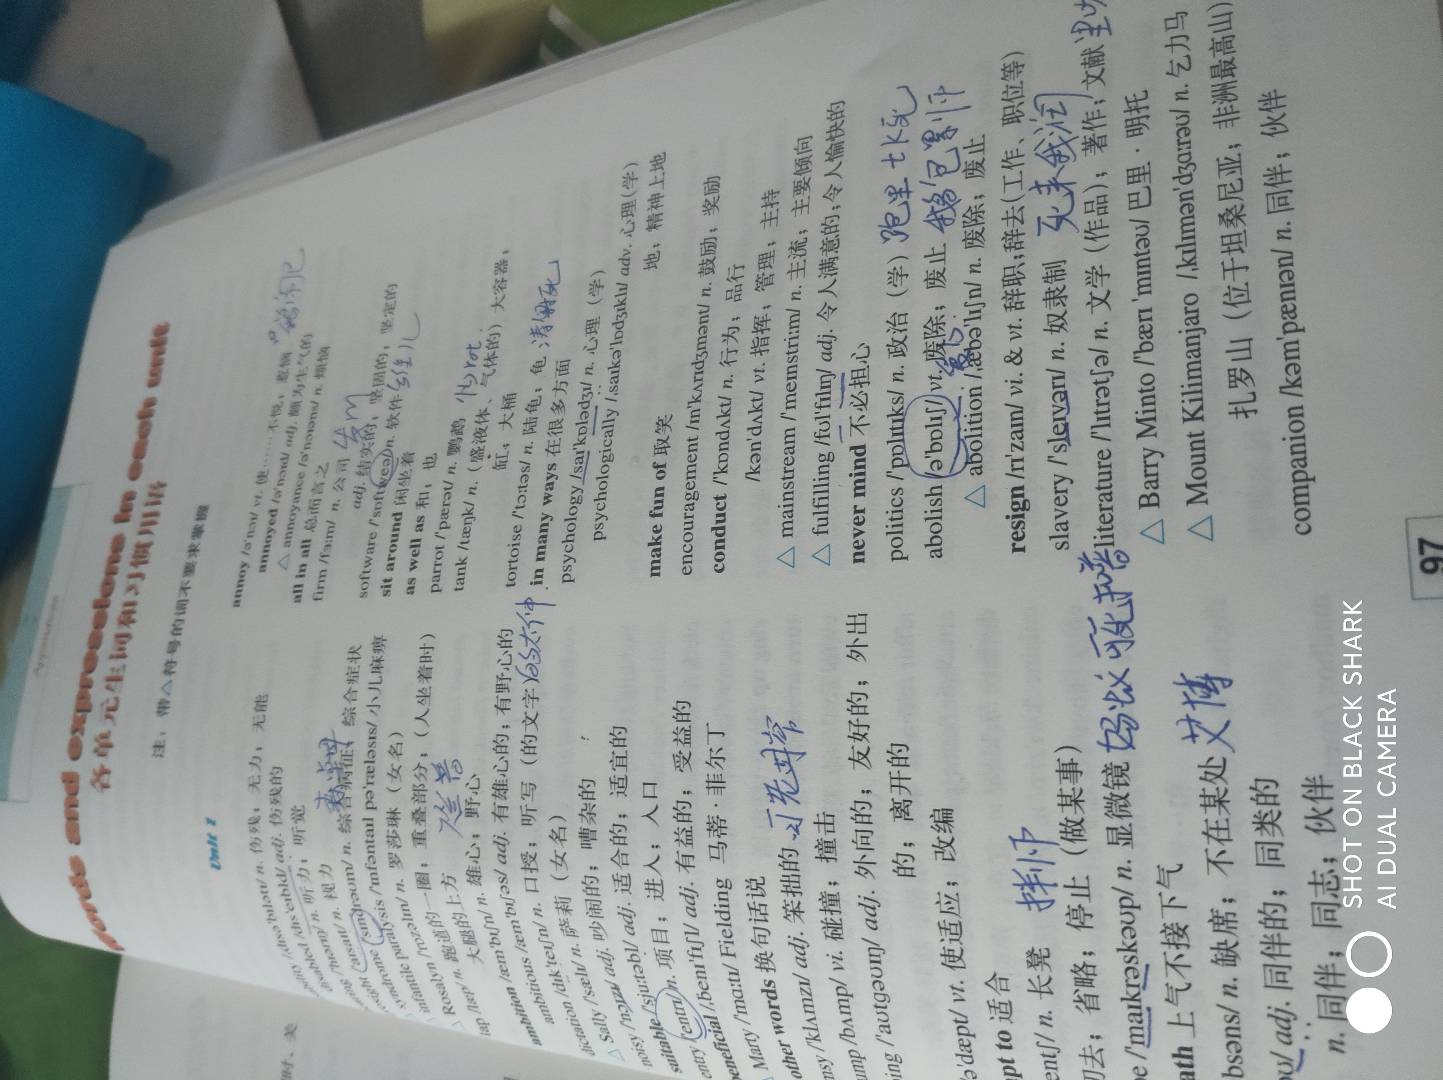 Appendices
Words and expressions in each unit
各单元生词和习惯用语
注：带△符号的词不要求掌握
Unit 1
/ˌdɪsə'bɪlətɪ/ n. 伤残；无力；无能
disabled /dɪs'eɪbld/ adj. 伤残的
/'hɪərɪŋ/ n. 听力；听觉
n. 视力
syndrome /'sɪndrəʊm/ n. 综合病征；综合症状
infantile paralysis /'ɪnfəntaɪl pə'ræləsɪs/ 小儿麻痹
△ Rosalyn /'rɒzəlɪn/ n. 罗莎琳（女名）
lap /læp/ n. 跑道的一圈；重叠部分；（人坐着时）
大腿的上方
ambition /æm'bɪʃn/ n. 雄心；野心
ambitious /æm'bɪʃəs/ adj. 有雄心的；有野心的
dictation /dɪk'teɪʃn/ n. 口授；听写（的文字）
△ Sally /'sælɪ/ n. 萨莉（女名）
noisy /'nɔɪzɪ/ adj. 吵闹的；嘈杂的
suitable /'sjuːtəbl/ adj. 适合的；适宜的
entry /'entrɪ/ n. 项目；进入；入口
beneficial /ˌbenɪ'fɪʃl/ adj. 有益的；受益的
△ Marty /'mɑːtɪ/ Fielding 马蒂·菲尔丁
other words 换句话说
msy /'klʌmzɪ/ adj. 笨拙的
ump /bʌmp/ vi. 碰撞；撞击
ing /'aʊtgəʊɪŋ/ adj. 外向的；友好的；外出
的；离开的
/ə'dæpt/ vt. 使适应；改编
pt to 适合
entʃ/ n. 长凳
切去；省略；停止（做某事）
e /'maɪkrəskəʊp/ n. 显微镜
ath 上气不接下气
bsəns/ n. 缺席；不在某处 艾博
adj. 同伴的；同类的
n. 同伴；同志；伙伴
annoy /ə'nɔɪ/ vt. 使……不悦；惹恼
annoyed /ə'nɔɪd/ adj. 颇为生气的
△ annoyance /ə'nɔɪəns/ n. 烦恼
all in all 总而言之
firm /fɜːm/ n. 公司
adj. 结实的；坚固的；坚定的
software /'sɒftweə/ n. 软件
sit around 闲坐着
as well as 和；也
parrot /'pærət/ n. 鹦鹉
tank /tæŋk/ n.（盛液体、气体的）大容器；
缸；大桶
tortoise /'tɔːtəs/ n. 陆龟；龟
in many ways 在很多方面
psychology /saɪ'kɒlədʒɪ/ n. 心理（学）
psychologically /ˌsaɪkə'lɒdʒɪklɪ/ adv. 心理(学)
地；精神上地
make fun of 取笑
encouragement /ɪn'kʌrɪdʒmənt/ n. 鼓励；奖励
conduct /'kɒndʌkt/ n. 行为；品行
/kən'dʌkt/ vt. 指挥；管理；主持
△ mainstream /'meɪnstriːm/ n. 主流；主要倾向
△ fulfilling /fʊl'fɪlɪŋ/ adj. 令人满意的；令人愉快的
never mind 不必担心
politics /'pɒlɪtɪks/ n. 政治（学）
abolish /ə'bɒlɪʃ/ vt. 废除；废止
△ abolition /ˌæbə'lɪʃn/ n. 废除；废止
resign /rɪ'zaɪn/ vi. & vt. 辞职；辞去(工作、职位等)
slavery /'sleɪvərɪ/ n. 奴隶制
literature /'lɪtrətʃə/ n. 文学（作品）；著作；文献
△ Barry Minto /'bærɪ 'mɪntəʊ/ 巴里·明托
△ Mount Kilimanjaro /ˌkɪlɪmən'dʒɑːrəʊ/ n. 乞力马
扎罗山（位于坦桑尼亚，非洲最高山）
companion /kəm'pænɪən/ n. 同伴；伙伴
97
SHOT ON BLACK SHARK
AI DUAL CAMERA